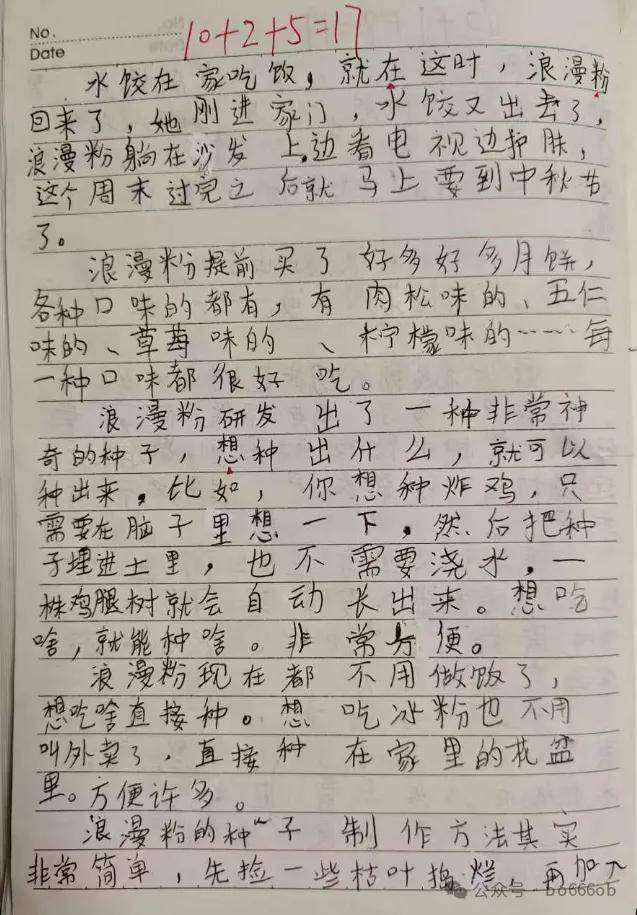 No.
Date
10+2+5=17
水饺在家吃饭，就在这时，浪漫粉
回来了，她刚进家门，水饺又出去了，
浪漫粉躺在沙发上，边看电视边护肤，
这个周末过完之后就马上要到中秋节
了。
浪漫粉提前买了好多好多月饼，
各种口味的都有，有肉松味的、五仁
味的、草莓味的、柠檬味的……每
一种口味都很好吃。
浪漫粉研发出了一种非常神
奇的种子，想种出什么，就可以
种出来。比如，你想种炸鸡，只
需要在脑子里想一下，然后把种
子埋进土里，也不需要浇水，一
株鸡腿树就会自动长出来。想吃
啥，就能种啥。非常方便。
浪漫粉现在都不用做饭了，
想吃啥直接种。想吃冰粉也不用
叫外卖了，直接种在家里的花盆
里。方便许多。
浪漫粉的种子制作方法其实
非常简单，先捡一些枯叶捣烂，再加入
公众号·bb666ob